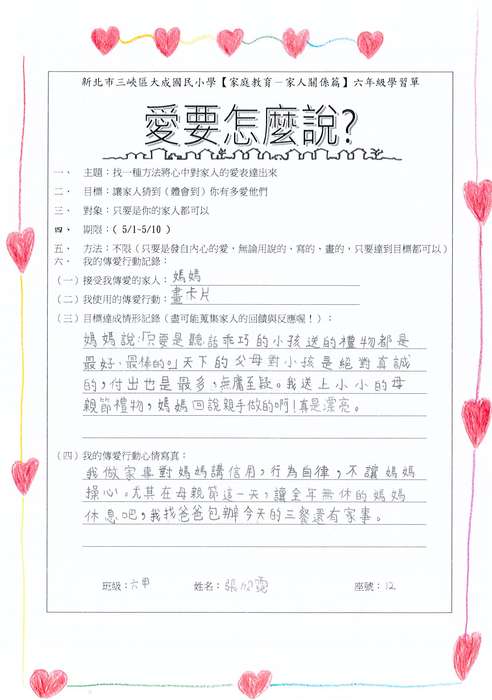 新北市三峽區大成國民小學【家庭教育－家人關係篇】六年級學習單
愛要怎麼說?
一、 主題：找一種方法將心中對家人的愛表達出來
二、 目標：讓家人猜到（體會到）你有多愛他們
三、 對象：只要是你的家人都可以
四、 期限：( 5/1-5/10 )
五、 方法：不限（只要是發自內心的愛，無論用說的、寫的、畫的，只要達到目標都可以）
六、 我的傳愛行動記錄：
（一）接受我傳愛的家人：媽媽
（二）我使用的傳愛行動：畫卡片
（三）目標達成情形記錄（盡可能蒐集家人的回饋與反應喔！）：
媽媽說:「只要是聽話乖巧的小孩送的禮物都是
最好、最棒的。」天下的父母對小孩是絕對真誠
的，付出也是最多、無庸至疑。我送上小小的母
親節禮物，媽媽回說親手做的啊!真是漂亮。
（四）我的傳愛行動心情寫真：
我做家事對媽媽講信用，行為自律，不讓媽媽
操心。尤其在母親節這一天，讓全年無休的媽媽
休息吧，我找爸爸包辦今天的三餐還有家事。
班級：六甲 姓名：張 座號：12